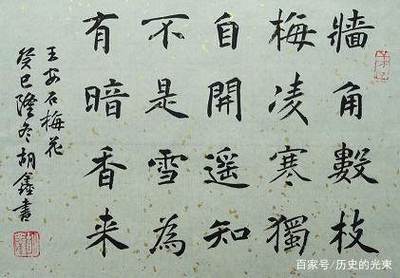 牆角數枝
梅凌寒獨
自開遥知
不是雪為
有暗香来
王安石梅花
癸巳隆冬胡鑫書
百家号/历史的光束